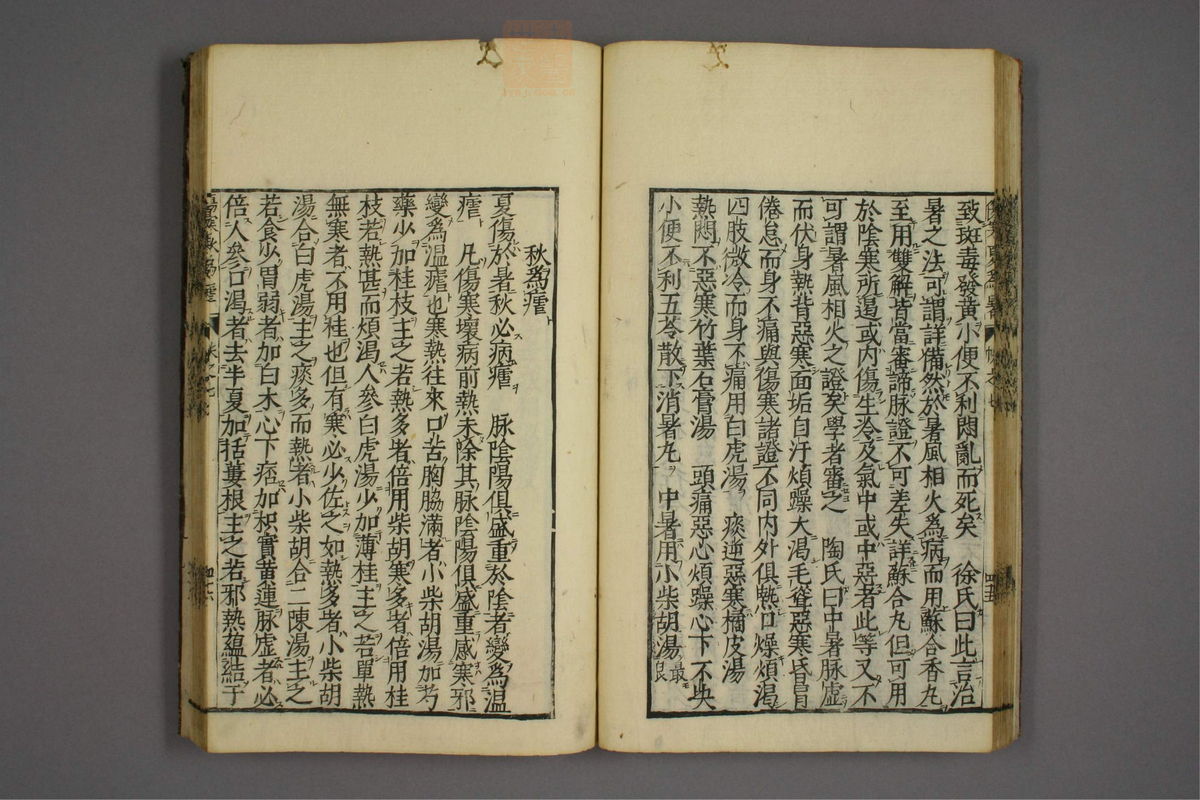 致斑毒發黃小便不利悶亂而死矣　徐氏曰此言治
暑之法可謂詳備然於暑風相火為病而用蘇合香丸
至用雙解皆當審諦脉證不可差失詳蘇合丸但可用
於陰寒所逼或内傷生冷及氣中或中惡者此等又不
可謂暑風相火之證矣學者審之　陶氏曰中暑脉虛
而伏身熱背惡寒面垢自汗煩躁大渴毛聳惡寒昏冒
倦怠而身不痛與傷寒諸證不同内外俱熱口燥煩渴
四肢微冷而身不痛用白虎湯　痰逆惡寒橘皮湯
熱悶不惡寒竹葉石膏湯　頭痛惡心煩躁心下不快
小便不利五苓散下消暑丸　中暑用小柴胡湯最良
秋為瘧
夏傷於暑秋必病瘧　脉陰陽俱盛重於陰者變為温
瘧　凡傷寒壞病前熱未除其脉陰陽俱盛重感寒邪
變為温瘧也寒熱往來口苦胸脇滿者小柴胡湯加芍
藥少加桂枝主之若熱多者倍用柴胡寒多者倍用桂
枝若熱甚而煩渴人參白虎湯少加薄桂主之若單熱
無寒者不用桂也但有寒必少佐之如熱多者小柴胡
湯合白虎湯主之痰多而熱者小柴胡合二陳湯主之
若食少胃弱者加白木心下痞加枳實黄連脉虛者必
倍人參口渴者去半夏加括蔞根主之若邪熱蘊結于